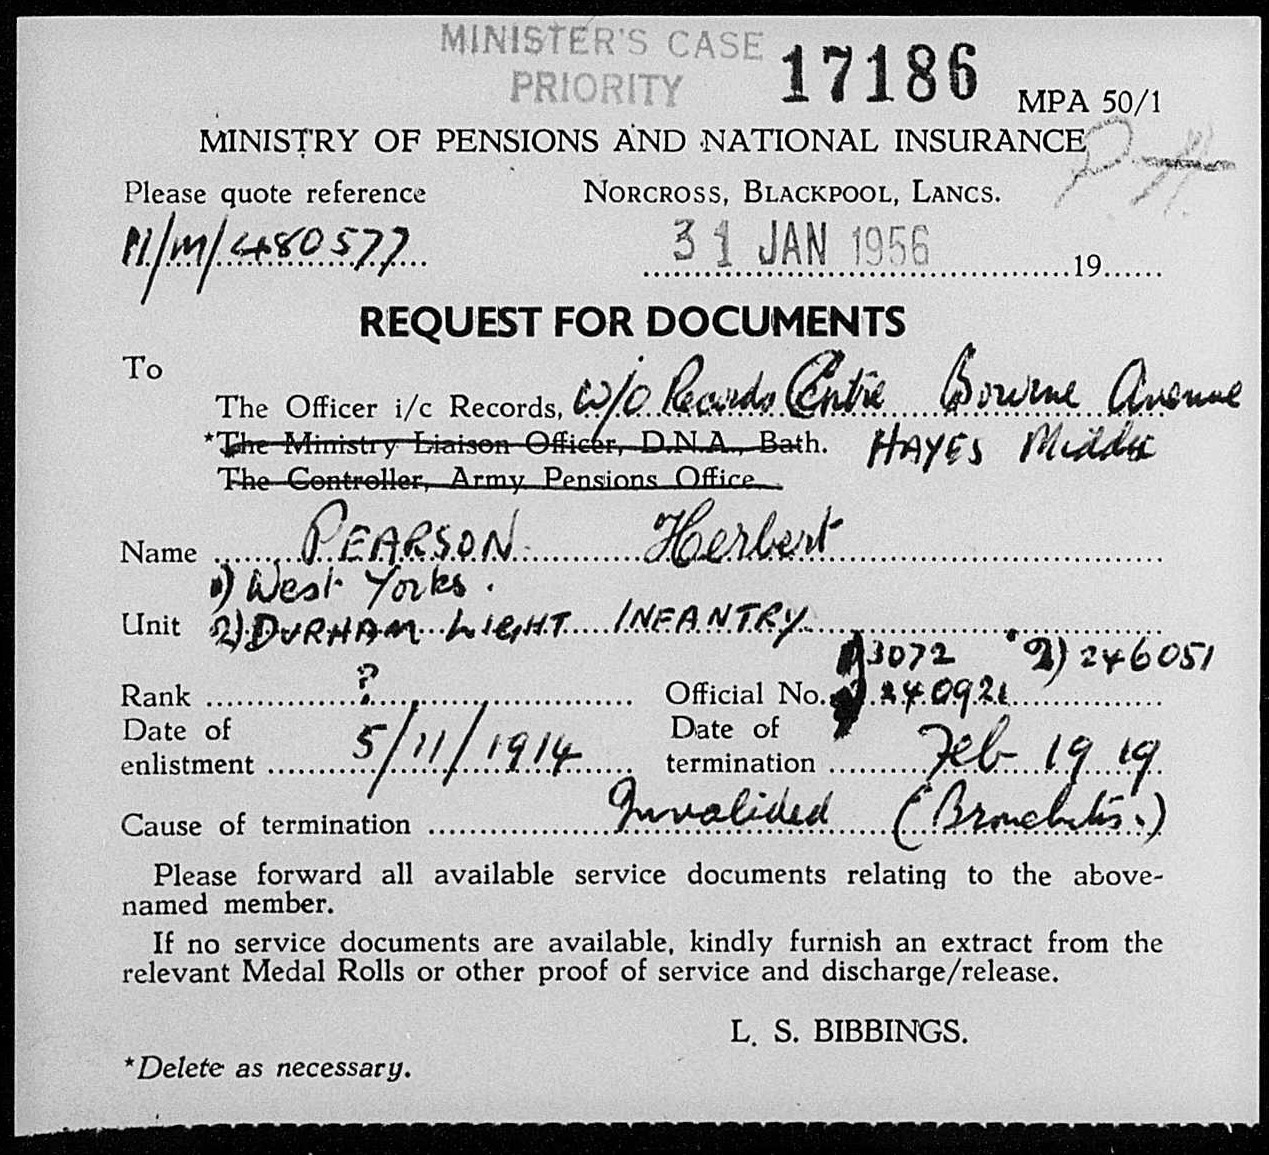 MINISTER'S CASE
PRIORITY
17186
MPA 50/1
MINISTRY OF PENSIONS AND NATIONAL INSURANCE
Please quote reference
NORCROSS, BLACKPOOL, LANCS.
/M/480577
31 JAN 1956 19
REQUEST FOR DOCUMENTS
To
The Officer i/c Records, W/O Records Centre Bourne Avenue
*The Ministry Liaison Officer, D.N.A., Bath. HAYES Middx
The Controller, Army Pensions Office
Name PEARSON Herbert
1) West Yorks.
Unit 2) DURHAM LIGHT INFANTRY
3072 2) 246051
Rank ? Official No. 240921
Date of enlistment 5/11/1914
Date of termination Feb 1919
Cause of termination Invalided (Bronchitis.)
Please forward all available service documents relating to the above-
named member.
If no service documents are available, kindly furnish an extract from the
relevant Medal Rolls or other proof of service and discharge/release.
L. S. BIBBINGS.
*Delete as necessary.